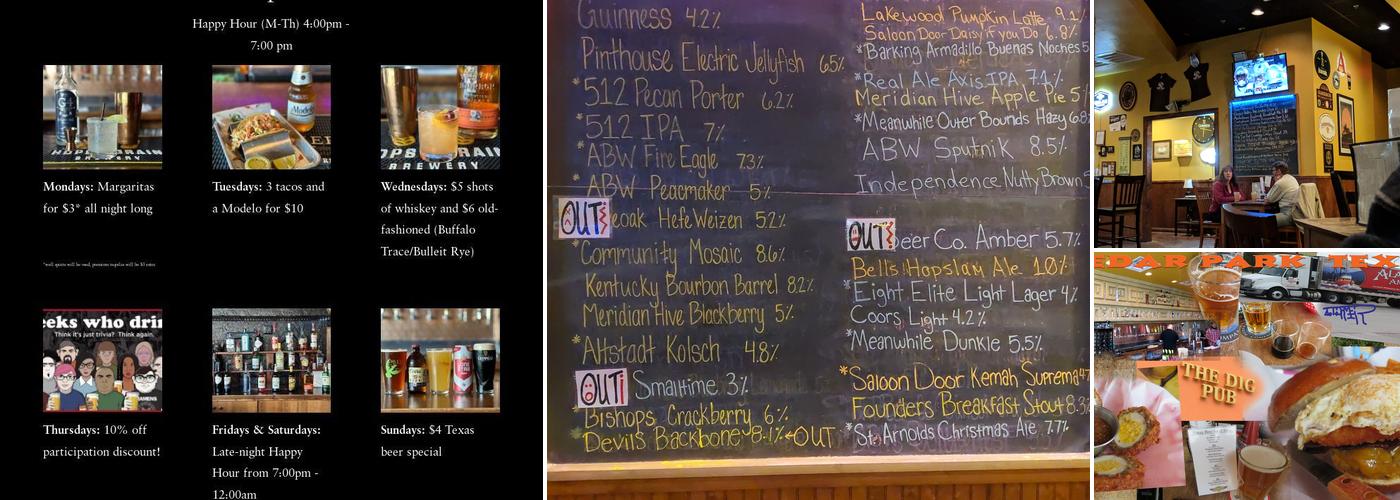 Happy Hour (M-Th) 4:00pm -
7:00 pm
Mondays: Margaritas
for $3* all night long
Tuesdays: 3 tacos and
a Modelo for $10
Wednesdays: $5 shots
of whiskey and $6 old-
fashioned (Buffalo
Trace/Bulleit Rye)
*well spirits will be used, premium tequilas will be $2 extra
eeks who drin
Think it's just trivia? Think again.
Thursdays: 10% off
participation discount!
Fridays & Saturdays:
Late-night Happy
Hour from 7:00pm -
12:00am
Sundays: $4 Texas
beer special
Guinness 4.2%
Pinthouse Electric Jellyfish 6.5%
*512 Pecan Porter 6.2%
*512 IPA 7%
*ABW Fire Eagle 7.3%
*ABW Peacmaker 5%
OUT! eoak HefeWeizen 5.2%
*Community Mosaic 8.6%
Kentucky Bourbon Barrel 8.2%
Meridian Hive Blackberry 5%
*Altstadt Kolsch 4.8%
OUT! Smaltime 3%
Bishops Crackberry 6%
Devils Backbone 8.1% ←OUT
Lakewood Pumpkin Latte 9.1%
Saloon Door Daisy if you Do 6.8%
*Barking Armadillo Buenas Noches 5
*Real Ale Axis IPA 7.1%
Meridian Hive Apple Pie 5%
*Meanwhile Outer Bounds Hazy 6.8%
ABW Sputnik 8.5%
Independence Nutty Brown 5
OUT! Beer Co. Amber 5.7%
Bells Hopslam Ale 10%
*Eight Elite Light Lager 4%
Coors Light 4.2%
*Meanwhile Dunkle 5.5%
*Saloon Door Kemah Suprema 4.7
Founders Breakfast Stout 8.3%
*St. Arnolds Christmas Ale 7.7%
EDAR PARK TEX
THE DIG
PUB